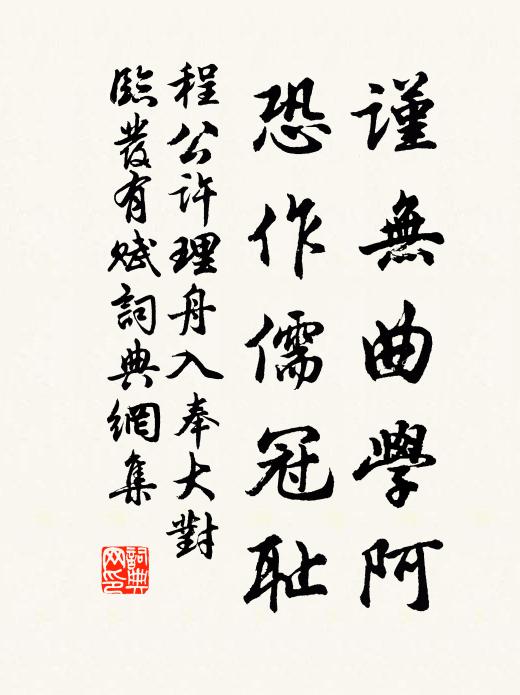 謹無曲學阿
恐作儒冠耻
程公許理舟入奉大對
臨發有賦詞典網集
詞典网印